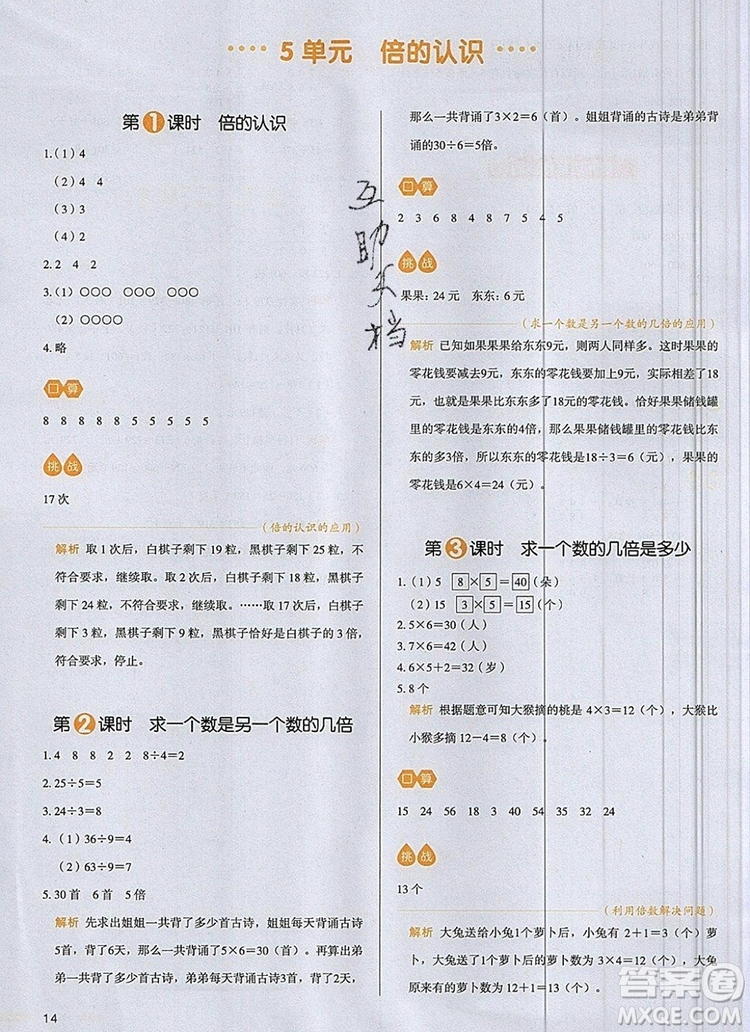 5单元 倍的认识
第1课时 倍的认识
1.(1)4
(2)4 4
(3)3
(4)2
2.2 4 2
3.(1)○○○ ○○○ ○○○
(2)○○○○
4.略
口算
8 8 8 8 8 5 5 5 5 5
挑战
17次
(倍的认识的应用)
解析 取1次后，白棋子剩下19粒，黑棋子剩下25粒，不
符合要求，继续取。取2次后，白棋子剩下18粒，黑棋子
剩下24粒，不符合要求，继续取。……取17次后，白棋子
剩下3粒，黑棋子剩下9粒，黑棋子恰好是白棋子的3倍，
符合要求，停止。
第2课时 求一个数是另一个数的几倍
1.4 8 8 2 2 8÷4=2
2.25÷5=5
3.24÷3=8
4.(1)36÷9=4
(2)63÷9=7
5.30首 6首 5倍
解析 先求出姐姐一共背了多少首古诗，姐姐每天背诵了古诗
5首，背了6天，那么一共背诵了5×6=30（首）。再算出弟弟
一共背了多少首古诗，弟弟每天背诵了古诗3首，背了2天，
14
那么一共背诵了3×2=6（首）。姐姐背诵的古诗是弟弟背
诵的30÷6=5倍。
口算
2 3 6 8 4 8 7 5 4 5
挑战
果果：24元 东东：6元
(求一个数是另一个数的几倍的应用)
解析 已知如果果果给东东9元，则两人同样多。这时果果的
零花钱要减去9元，东东的零花钱要加上9元，实际相差了18
元，也就是果果比东东多18元的零花钱。恰好果果储钱罐
里的零花钱是东东的4倍，那么果果储钱罐里的零花钱比东东
的多3倍，所以东东的零花钱是18÷3=6（元），果果的
零花钱是6×4=24（元）。
第3课时 求一个数的几倍是多少
1.(1)5 8×5=40（朵）
(2)15 3×5=15（个）
2.5×6=30（人）
3.7×6=42（人）
4.6×5+2=32（岁）
5.8个
解析 根据题意可知大猴摘的桃是4×3=12（个），大猴比
小猴多摘12-4=8（个）。
口算
15 24 30 18 27 32 40 54 36 32
挑战
13个
(利用倍数解决问题)
解析 大兔送给小兔1个萝卜后，小兔有2+1=3（个）萝
卜，大兔现在的萝卜数为3×4=12（个），大兔
原来有的萝卜数为12+1=13（个）。
互
助
文
档
答案圈
MXQE.COM